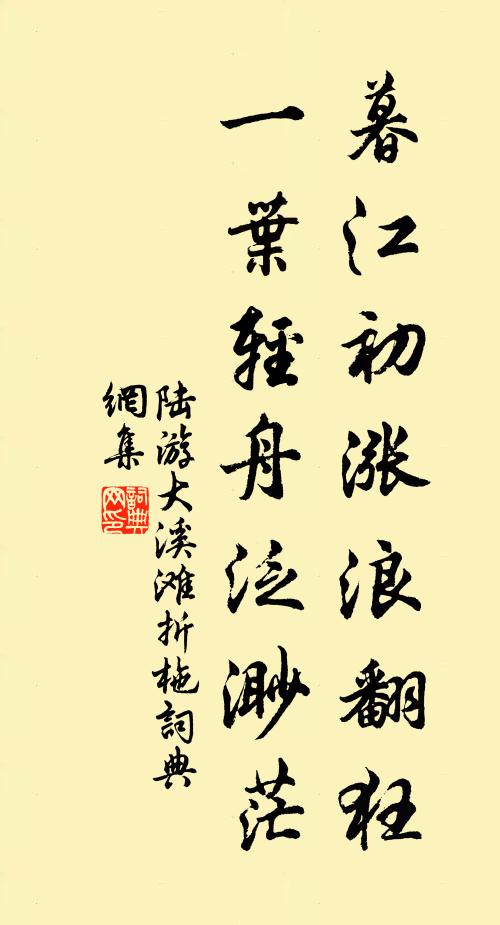 暮江初漲浪翻狂
一葉輕舟泛渺茫
陆游大溪滩折柂詞典
網集
詞典
网印